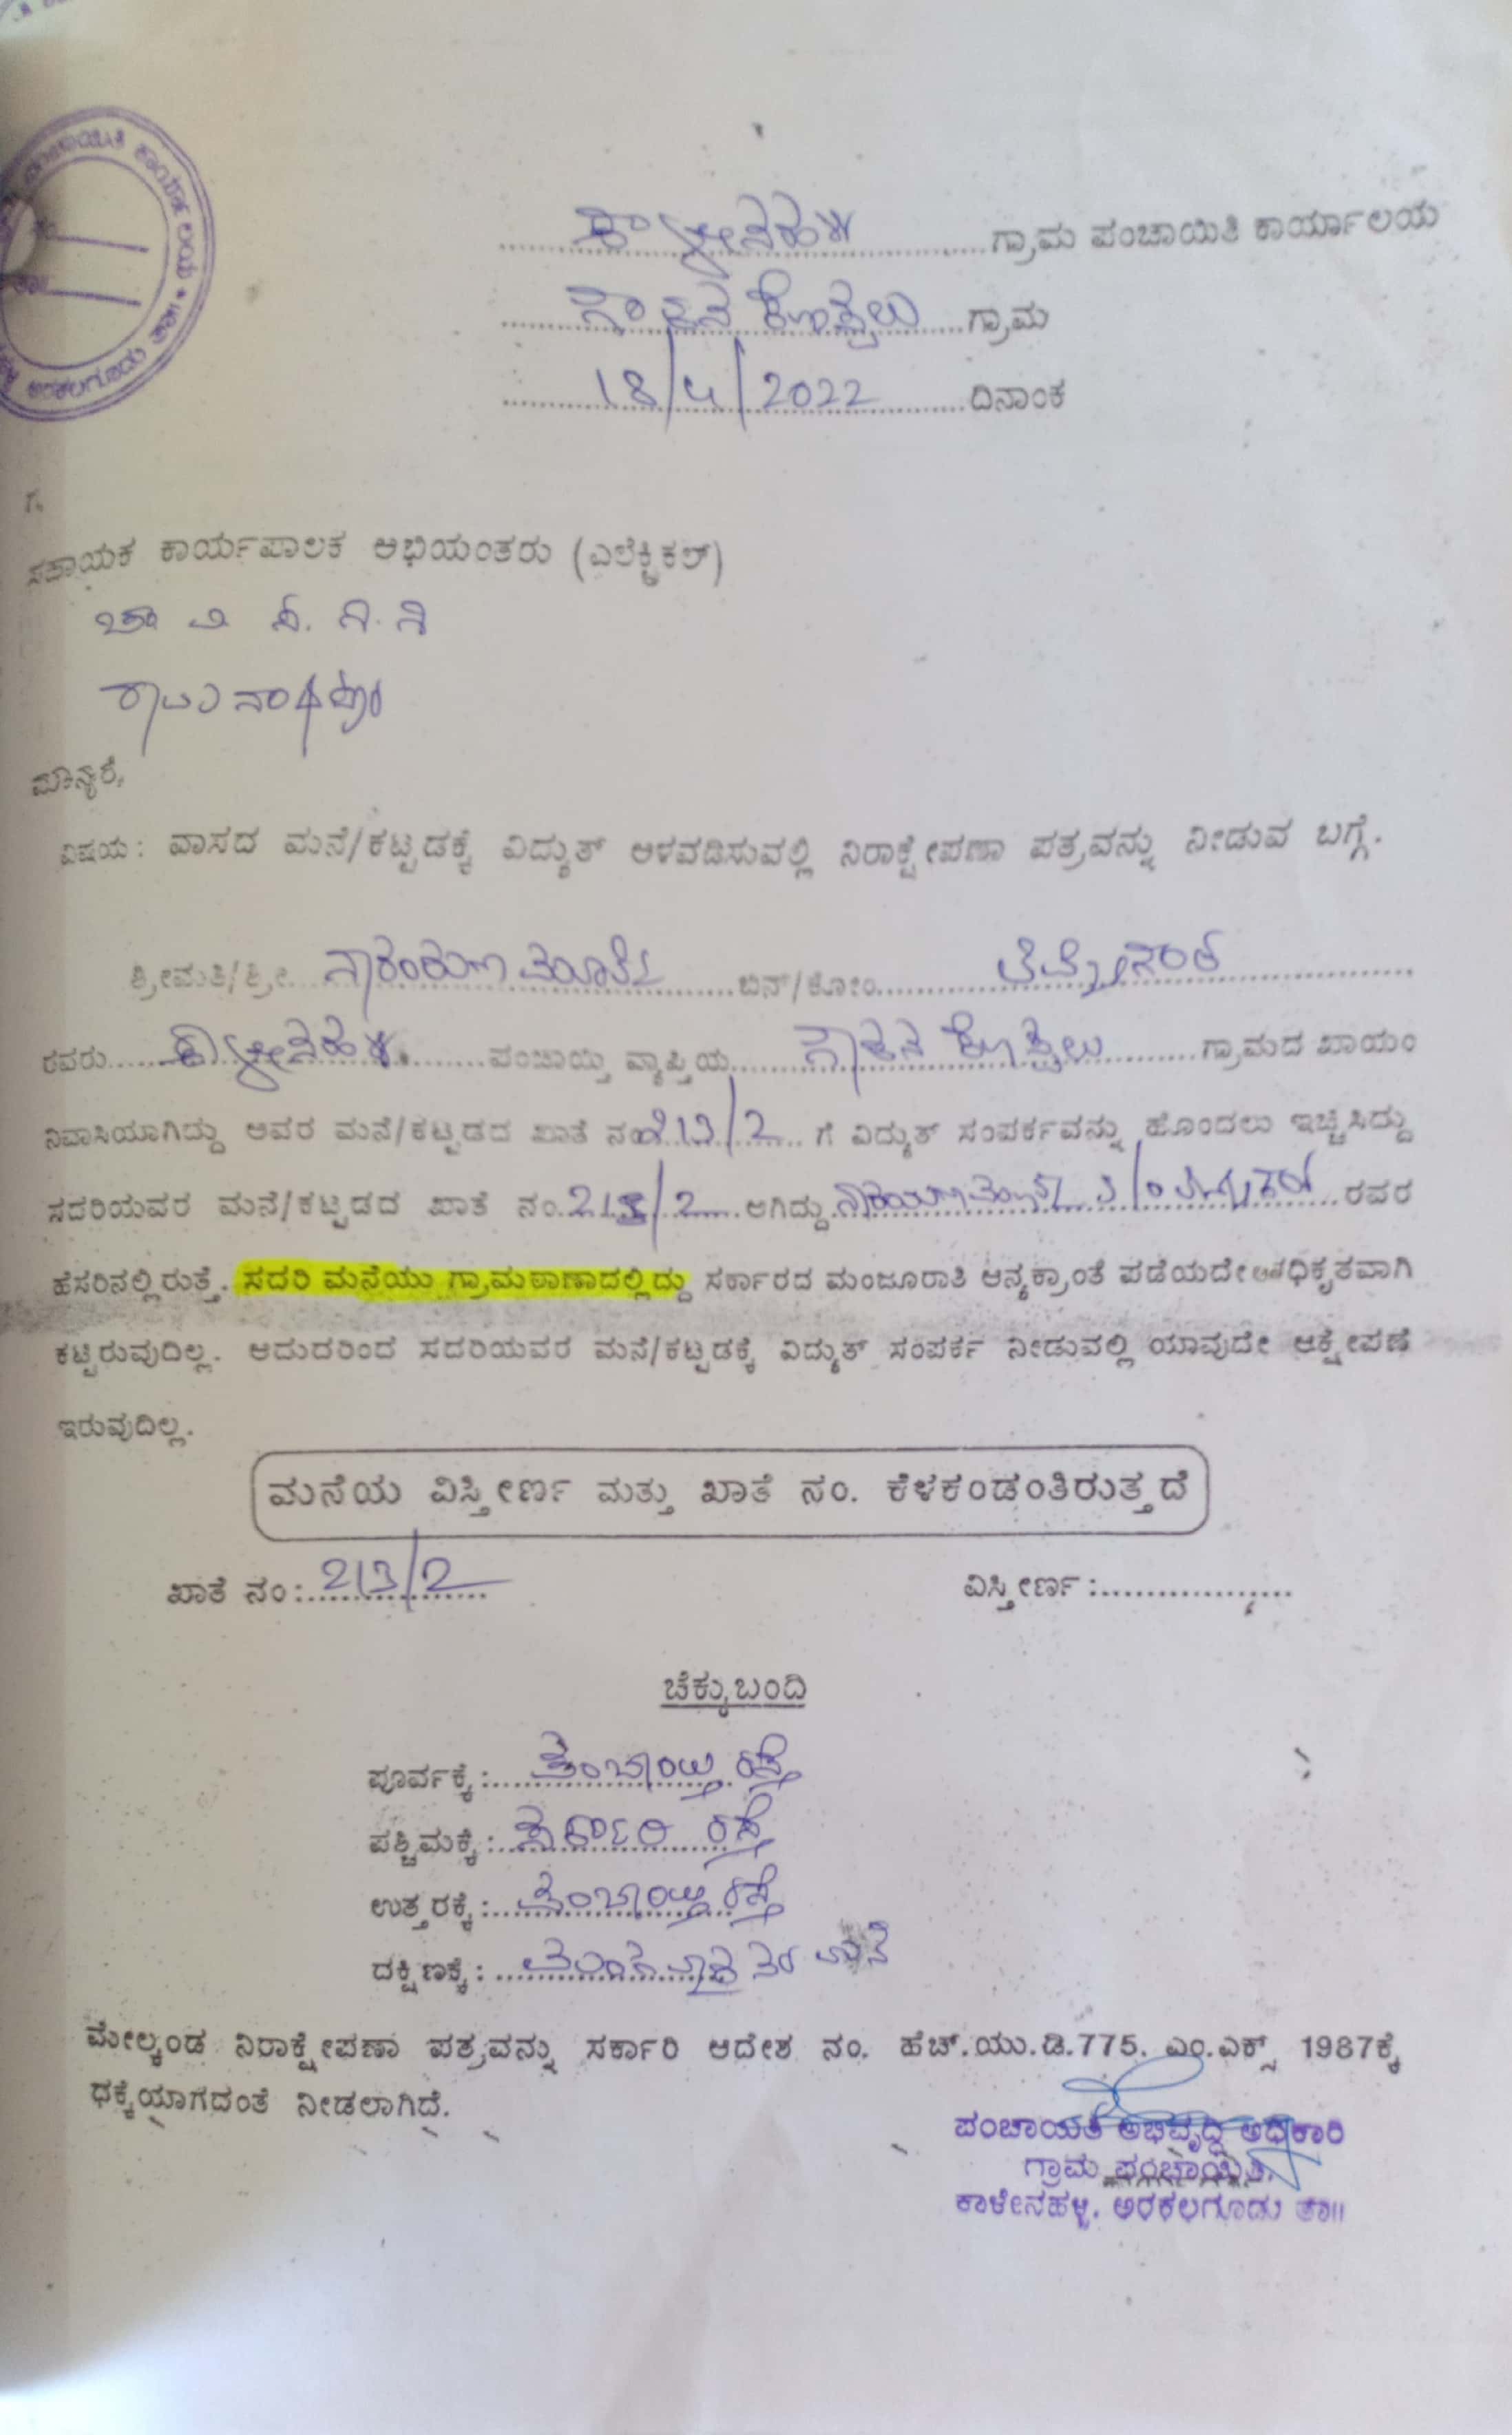 ಪಂಚಾಯಿತಿ ಕಾರ್ಯಾಲಯ * ಅರಕಲಗೂಡು ತಾಃ
ಕಾಳೇನಹಳ್ಳಿ ಗ್ರಾಮ ಪಂಚಾಯಿತಿ ಕಾರ್ಯಾಲಯ
ಗ್ರಾಮ
18/4/2022 ದಿನಾಂಕ
ಗೆ,
ಸಹಾಯಕ ಕಾರ್ಯಪಾಲಕ ಅಭಿಯಂತರು (ಎಲೆಕ್ಟ್ರಿಕಲ್)
ಚಾ ವಿ ಸ. ನಿ. ನಿ
ರಾಮನಾಥಪುರ
ಮಾನ್ಯರೆ,
ವಿಷಯ : ವಾಸದ ಮನೆ/ಕಟ್ಟಡಕ್ಕೆ ವಿದ್ಯುತ್ ಅಳವಡಿಸುವಲ್ಲಿ ನಿರಾಕ್ಷೇಪಣಾ ಪತ್ರವನ್ನು ನೀಡುವ ಬಗ್ಗೆ.
ಶ್ರೀಮತಿ/ಶ್ರೀ ನಾರಾಯಣ ಮೂರ್ತಿ ಬಿನ್/ಕೋಂ
ರವರು ಕಾಳೇನಹಳ್ಳಿ ಪಂಚಾಯ್ತಿ ವ್ಯಾಪ್ತಿಯ ಗ್ರಾಮದ ಖಾಯಂ
ನಿವಾಸಿಯಾಗಿದ್ದು ಅವರ ಮನೆ/ಕಟ್ಟಡದ ಖಾತೆ ನಂ 213/2 ಗೆ ವಿದ್ಯುತ್ ಸಂಪರ್ಕವನ್ನು ಹೊಂದಲು ಇಚ್ಛಿಸಿದ್ದು
ಸದರಿಯವರ ಮನೆ/ಕಟ್ಟಡದ ಖಾತೆ ನಂ. 213/2 ಆಗಿದ್ದು ನಾರಾಯಣ ಮೂರ್ತಿ ರವರ
ಹೆಸರಿನಲ್ಲಿರುತ್ತೆ. ಸದರಿ ಮನೆಯು ಗ್ರಾಮಠಾಣಾದಲ್ಲಿದ್ದು ಸರ್ಕಾರದ ಮಂಜೂರಾತಿ ಅನ್ಯಕ್ರಾಂತೆ ಪಡೆಯದೇ ಅನಧಿಕೃತವಾಗಿ
ಕಟ್ಟಿರುವುದಿಲ್ಲ. ಆದುದರಿಂದ ಸದರಿಯವರ ಮನೆ/ಕಟ್ಟಡಕ್ಕೆ ವಿದ್ಯುತ್ ಸಂಪರ್ಕ ನೀಡುವಲ್ಲಿ ಯಾವುದೇ ಆಕ್ಷೇಪಣೆ
ಇರುವುದಿಲ್ಲ.
ಮನೆಯ ವಿಸ್ತೀರ್ಣ ಮತ್ತು ಖಾತೆ ನಂ. ಕೆಳಕಂಡಂತಿರುತ್ತದೆ
ಖಾತೆ ನಂ: 213/2 ವಿಸ್ತೀರ್ಣ :
ಚೆಕ್ಕುಬಂದಿ
ಪೂರ್ವಕ್ಕೆ : ಪಂಚಾಯ್ತಿ ರಸ್ತೆ
ಪಶ್ಚಿಮಕ್ಕೆ : ಸರ್ಕಾರಿ ರಸ್ತೆ
ಉತ್ತರಕ್ಕೆ : ಪಂಚಾಯ್ತಿ ರಸ್ತೆ
ದಕ್ಷಿಣಕ್ಕೆ : ಮನೆ
ಮೇಲ್ಕಂಡ ನಿರಾಕ್ಷೇಪಣಾ ಪತ್ರವನ್ನು ಸರ್ಕಾರಿ ಆದೇಶ ನಂ. ಹೆಚ್.ಯು.ಡಿ.775. ಎಂ.ಎಕ್ಸ್ 1987ಕ್ಕೆ
ಧಕ್ಕೆಯಾಗದಂತೆ ನೀಡಲಾಗಿದೆ.
ಪಂಚಾಯತಿ ಅಭಿವೃದ್ಧಿ ಅಧಿಕಾರಿ
ಗ್ರಾಮ ಪಂಚಾಯಿತಿ.
ಕಾಳೇನಹಳ್ಳಿ. ಅರಕಲಗೂಡು ತಾ॥